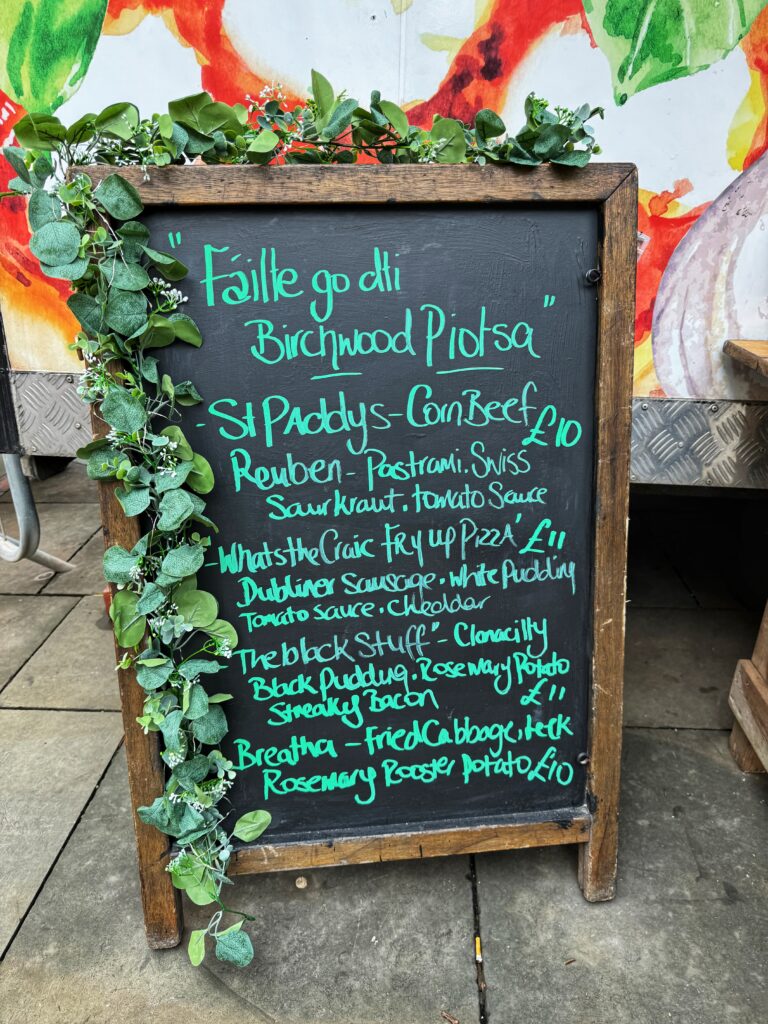 " Fáilte go dti
Birchwood Piotsa "
- St PAddys - Corn Beef £10
Reuben - Pastrami. Swiss
Saurkraut. tomato Sauce
- Whats the Craic Fry up PizzA' £11
Dubliner Sausage. white Pudding
Tomato sauce. cheddar
The black Stuff" - Clonacilly
Black Pudding. Rosemary Potato
Streaky Bacon £11
Breatha - fried Cabbage, leek
Rosemary Rooster Potato £10